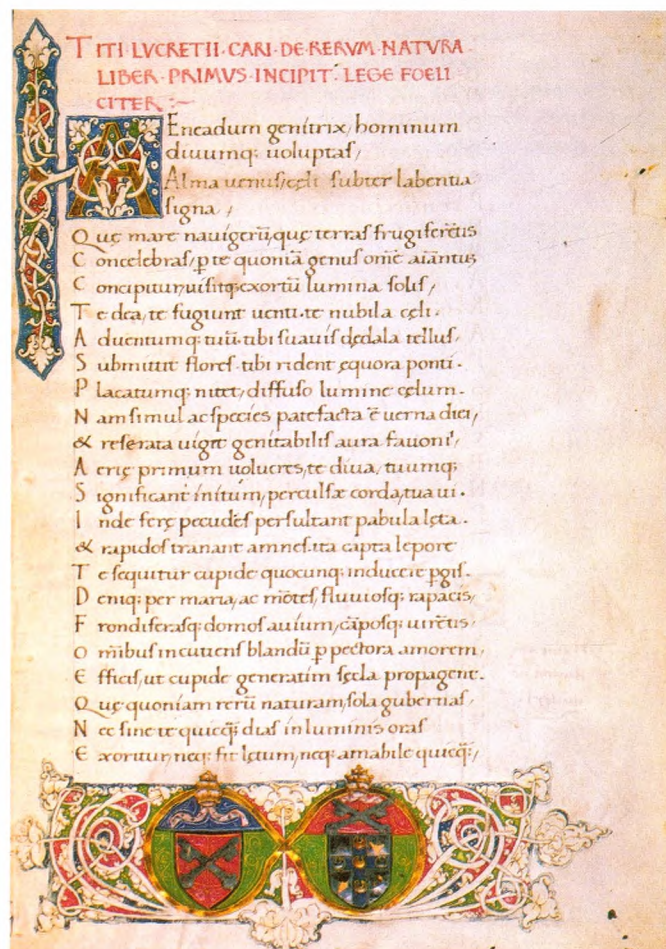 TITI·LVCRETII·CARI·DE·RERVM·NATVRA·
LIBER·PRIMVS·INCIPIT·LEGE FOELI
CITER:~
AEneadum genitrix, hominum
diuumq; uoluptas,
Alma uenus, cęli subter labentia
signa,
Quę mare nauigerū, quę terras frugiferētis
Concelebras, ꝑ te quoniā genus omē aīantū,
Concipitur, uisitq; exortū lumina solis,
Te dea, te fugiunt uenti·te nubila cęli·
Aduentumq; tuū·tibi suauis dędala tellus,
Submittit flores·tibi rident ęquora ponti·
Placatumq; nitet, diffuso lumine cęlum·
Nam simul ac species patefacta ē uerna diei,
& reserata uiget genitabilis aura fauoni,
Aerię primum uolucres, te diua, tuumq;
Significant initum, perculsæ corda, tua ui·
Inde ferę pecudes persultant pabula lęta·
& rapidos tranant amnes·ita capta lepore
Te sequitur cupide quocunq; inducere ꝑgis·
Deniq; per maria, ac mōtes, fluuiosq; rapacis,
Frondiferasq; domos auium, cāposq; uirētis,
Omībus incutiens blandū ꝑ pectora amorem,
Efficis, ut cupide generatim sęcla propagent·
Quę quoniam rerū naturam, sola gubernas,
Nec sine te quicq̄ dias in luminis oras
Exoritur, neq; fit lętum, neq; amabile quicq̄,